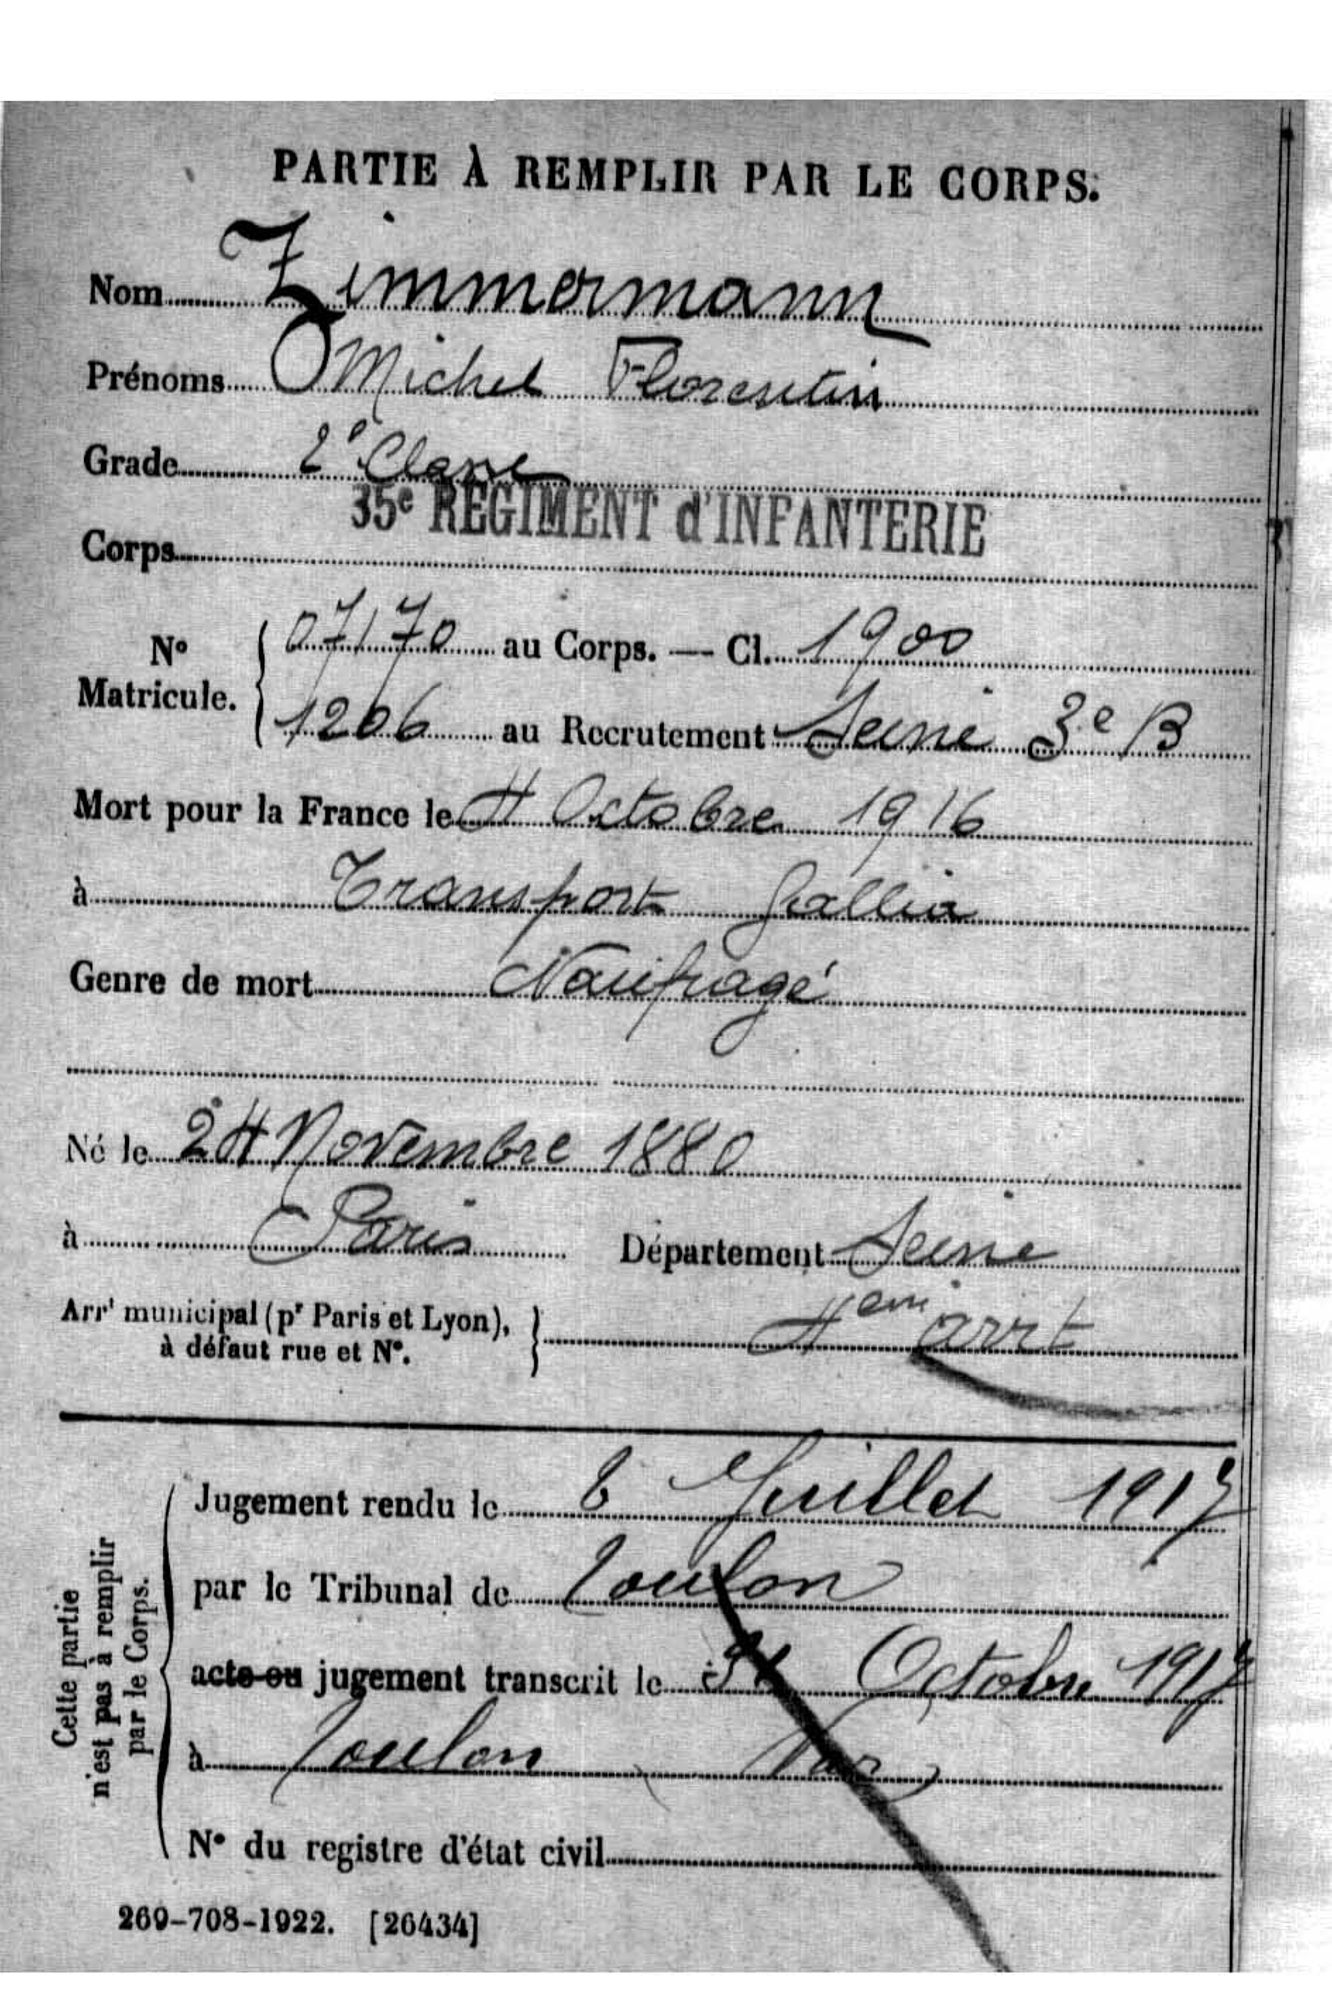 PARTIE À REMPLIR PAR LE CORPS.
Nom Zimmermann
Prénoms Michel Florentin
Grade 2e Classe
35e RÉGIMENT d'INFANTERIE
Corps
No Matricule. 07170 au Corps. — Cl. 1900
1206 au Recrutement Seine 3e B
Mort pour la France le 4 Octobre 1916
à Transport Gallia
Genre de mort Naufragé
Né le 24 Novembre 1880
à Paris Département Seine
Arrt municipal (pr Paris et Lyon), à défaut rue et No. 4em arrt
Cette partie n'est pas à remplir par le Corps.
Jugement rendu le 6 Juillet 1917
par le Tribunal de Toulon
acte ou jugement transcrit le Octobre 1917
à Toulon (Var)
No du registre d'état civil
269-708-1922. [26434]